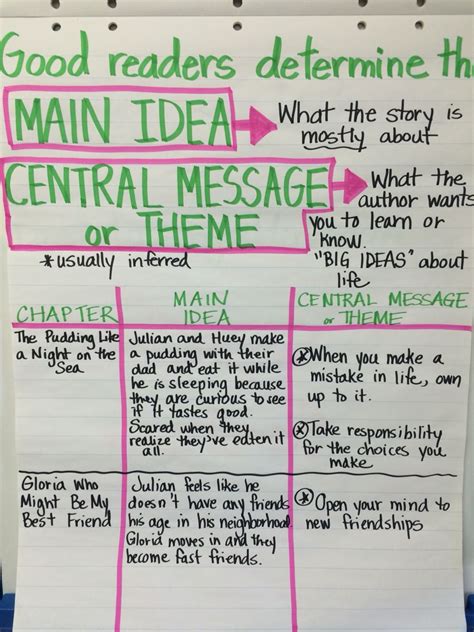 Good readers determine th
MAIN IDEA
What the story is
mostly about
CENTRAL MESSAGE
or THEME
*usually inferred
What the
author wants
you to learn or
know.
"BIG IDEAS" about
life
CHAPTER
MAIN
IDEA
CENTRAL MESSAGE
or THEME
The Pudding Like
a Night on the
Sea
Julian and Huey make
a pudding with their
dad and eat it while
he is sleeping because
they are curious to see
if it tastes good.
Scared when they
realize they've eaten it
all.
*When you make a
mistake in life, own
up to it.
*Take responsibility
for the choices you
make
Gloria Who
Might Be My
Best Friend
Julian feels like he
doesn't have any friends
his age in his neighborhood.
Gloria moves in and they
become fast friends.
*Open your mind to
new friendships